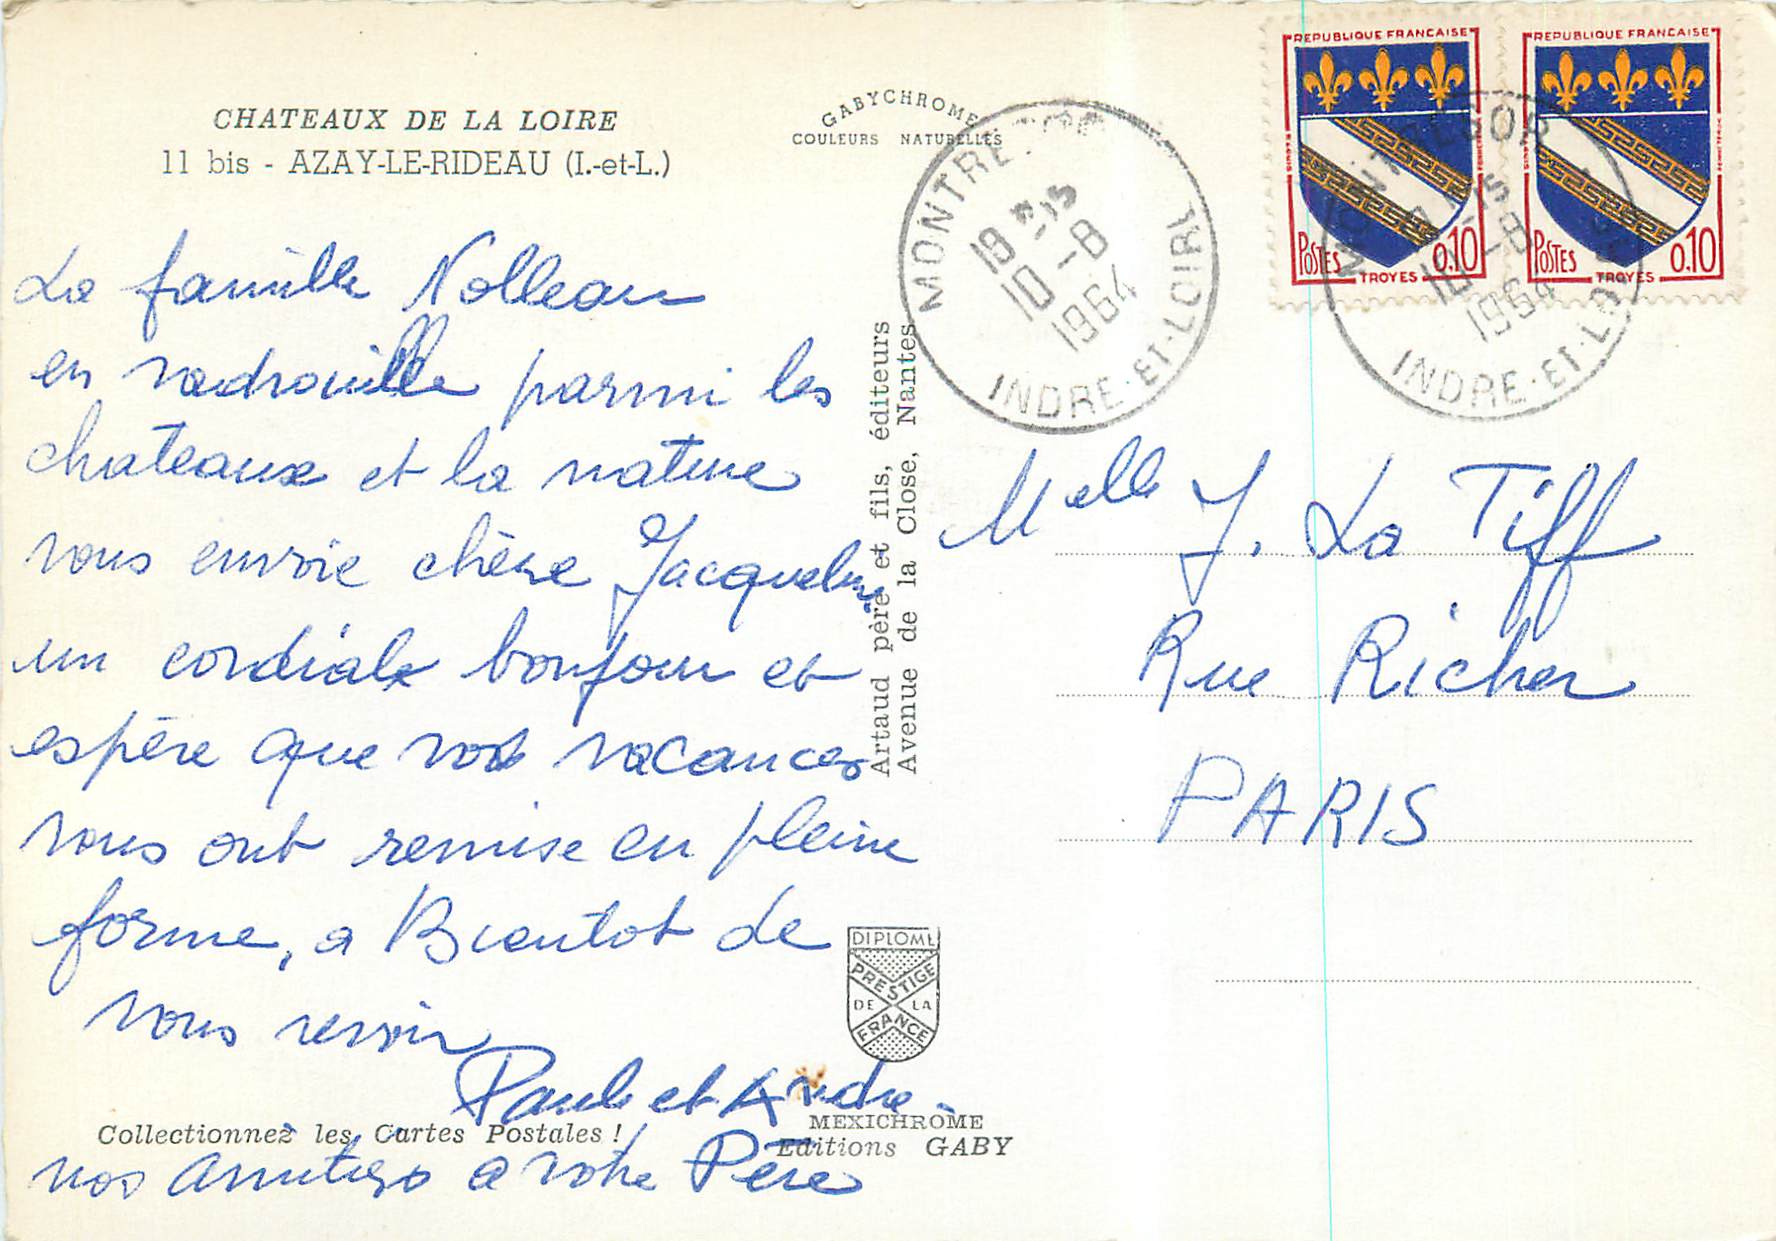 CHATEAUX DE LA LOIRE
11 bis - AZAY-LE-RIDEAU (I.-et-L.)
GABYCHROME
COULEURS NATURELLES
La famille Nolleau
en vadrouille parmi les
chateaux et la nature
vous envoie chère Jacqueline
un cordiale bonjour et
espère que vos vacances
vous ont remise en pleine
forme, a Bientot de
vous revoir
Paule et Andre.
nos amitiés a votre Père
Collectionnez les Cartes Postales !
Artaud père et fils, éditeurs
Avenue de la Close, Nantes
DIPLOME
PRESTIGE
DE LA
FRANCE
MEXICHROME
Editions GABY
MONTRE
19 H-15
10-8
1964
INDRE-ET-LOIRE
REPUBLIQUE FRANCAISE
POSTES 0.10
TROYES
REPUBLIQUE FRANCAISE
POSTES 0.10
TROYES
MONTRESOR
-15
10-8
1964
INDRE-ET-LOIRE
Melle J. La Tiff
Rue Richer
PARIS